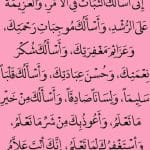 إِنِّي أَسْأَلُكَ الثَّبَاتَ فِي الْأَمْرِ، وَالْعَزِيمَةَ
عَلَى الرُّشْدِ، وَأَسْأَلُكَ مُوجِبَاتِ رَحْمَتِكَ،
وَعَزَائِمَ مَغْفِرَتِكَ، وَأَسْأَلُكَ شُكْرَ
نِعْمَتِكَ، وَحُسْنَ عِبَادَتِكَ، وَأَسْأَلُكَ قَلْبًا
سَلِيمًا، وَلِسَانًا صَادِقًا، وَأَسْأَلُكَ مِنْ خَيْرِ
مَا تَعْلَمُ، وَأَعُوذُ بِكَ مِنْ شَرِّ مَا تَعْلَمُ،
وَأَسْتَغْفِرُكَ لِمَا تَعْلَمُ، إِنَّكَ أَنْتَ عَلَّامُ